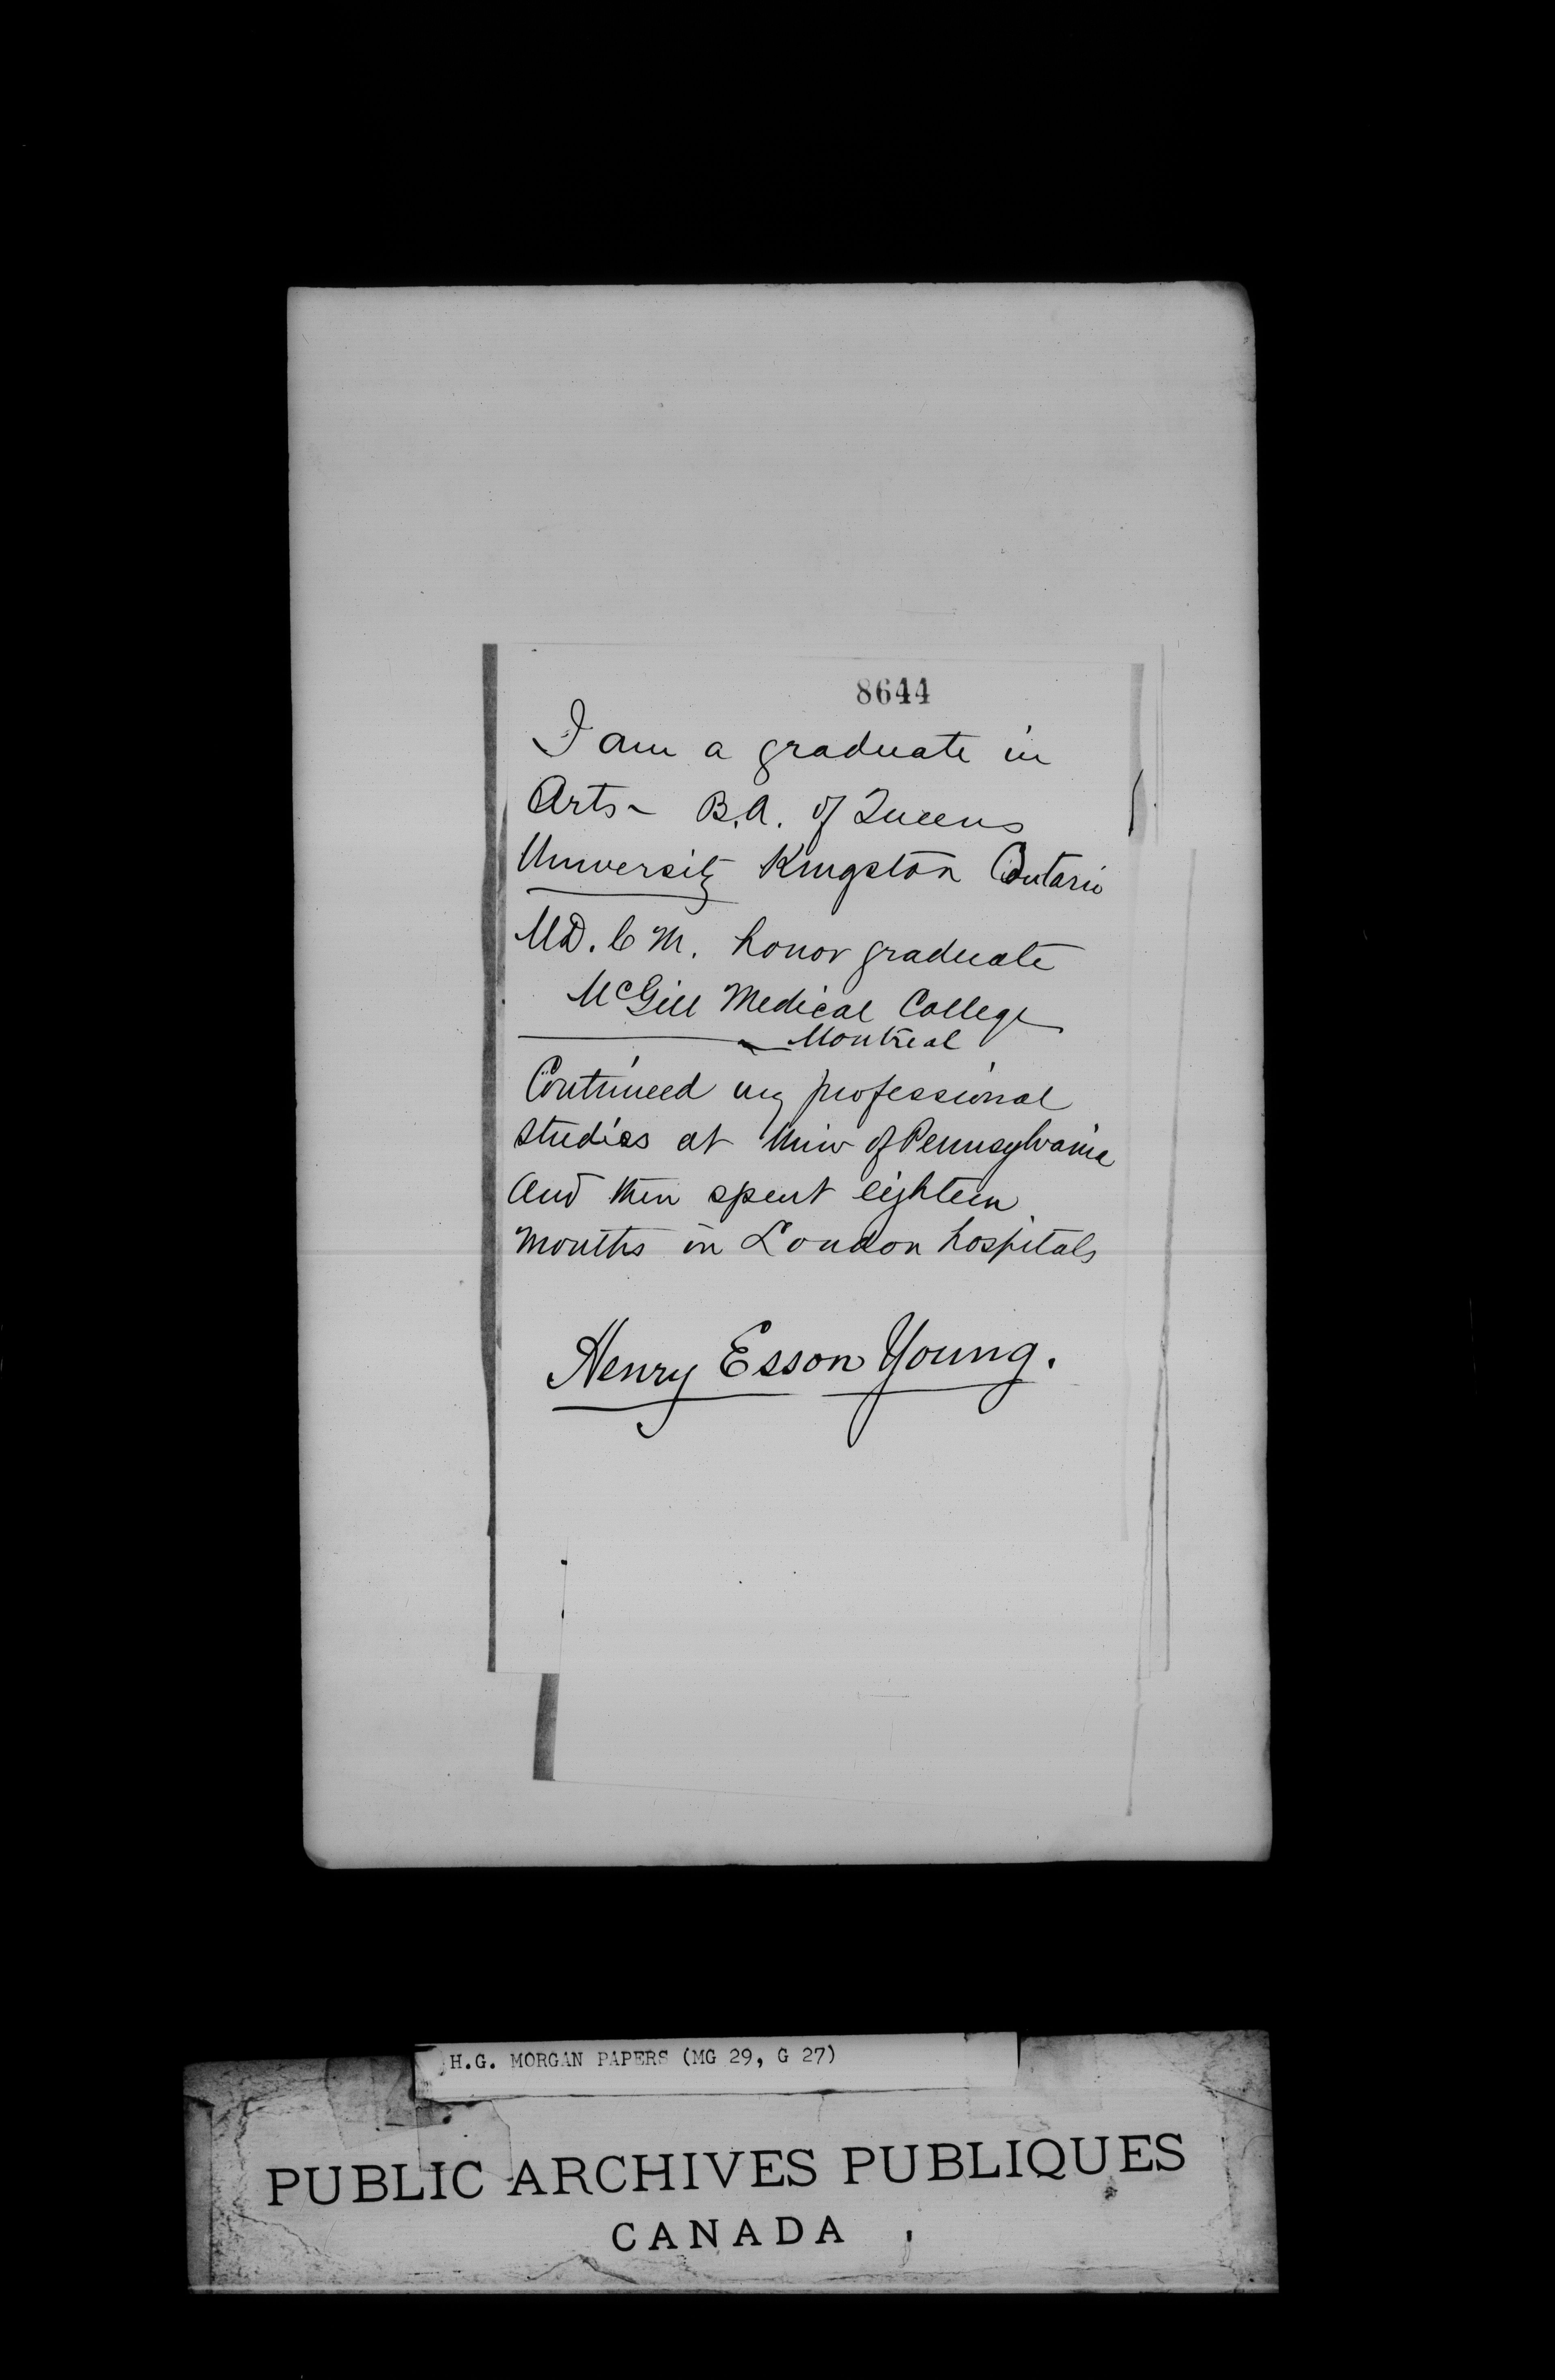 8644
I am a graduate in
Arts - B.A. of Queens
University Kingston Ontario
MD. C M. honor graduate
McGill Medical College
Montreal
Continued my professional
studies at Univ of Pennsylvania
and then spent eighteen
months in London hospitals
Henry Esson Young.
H.G. MORGAN PAPERS (MG 29, G 27)
PUBLIC ARCHIVES PUBLIQUES
CANADA